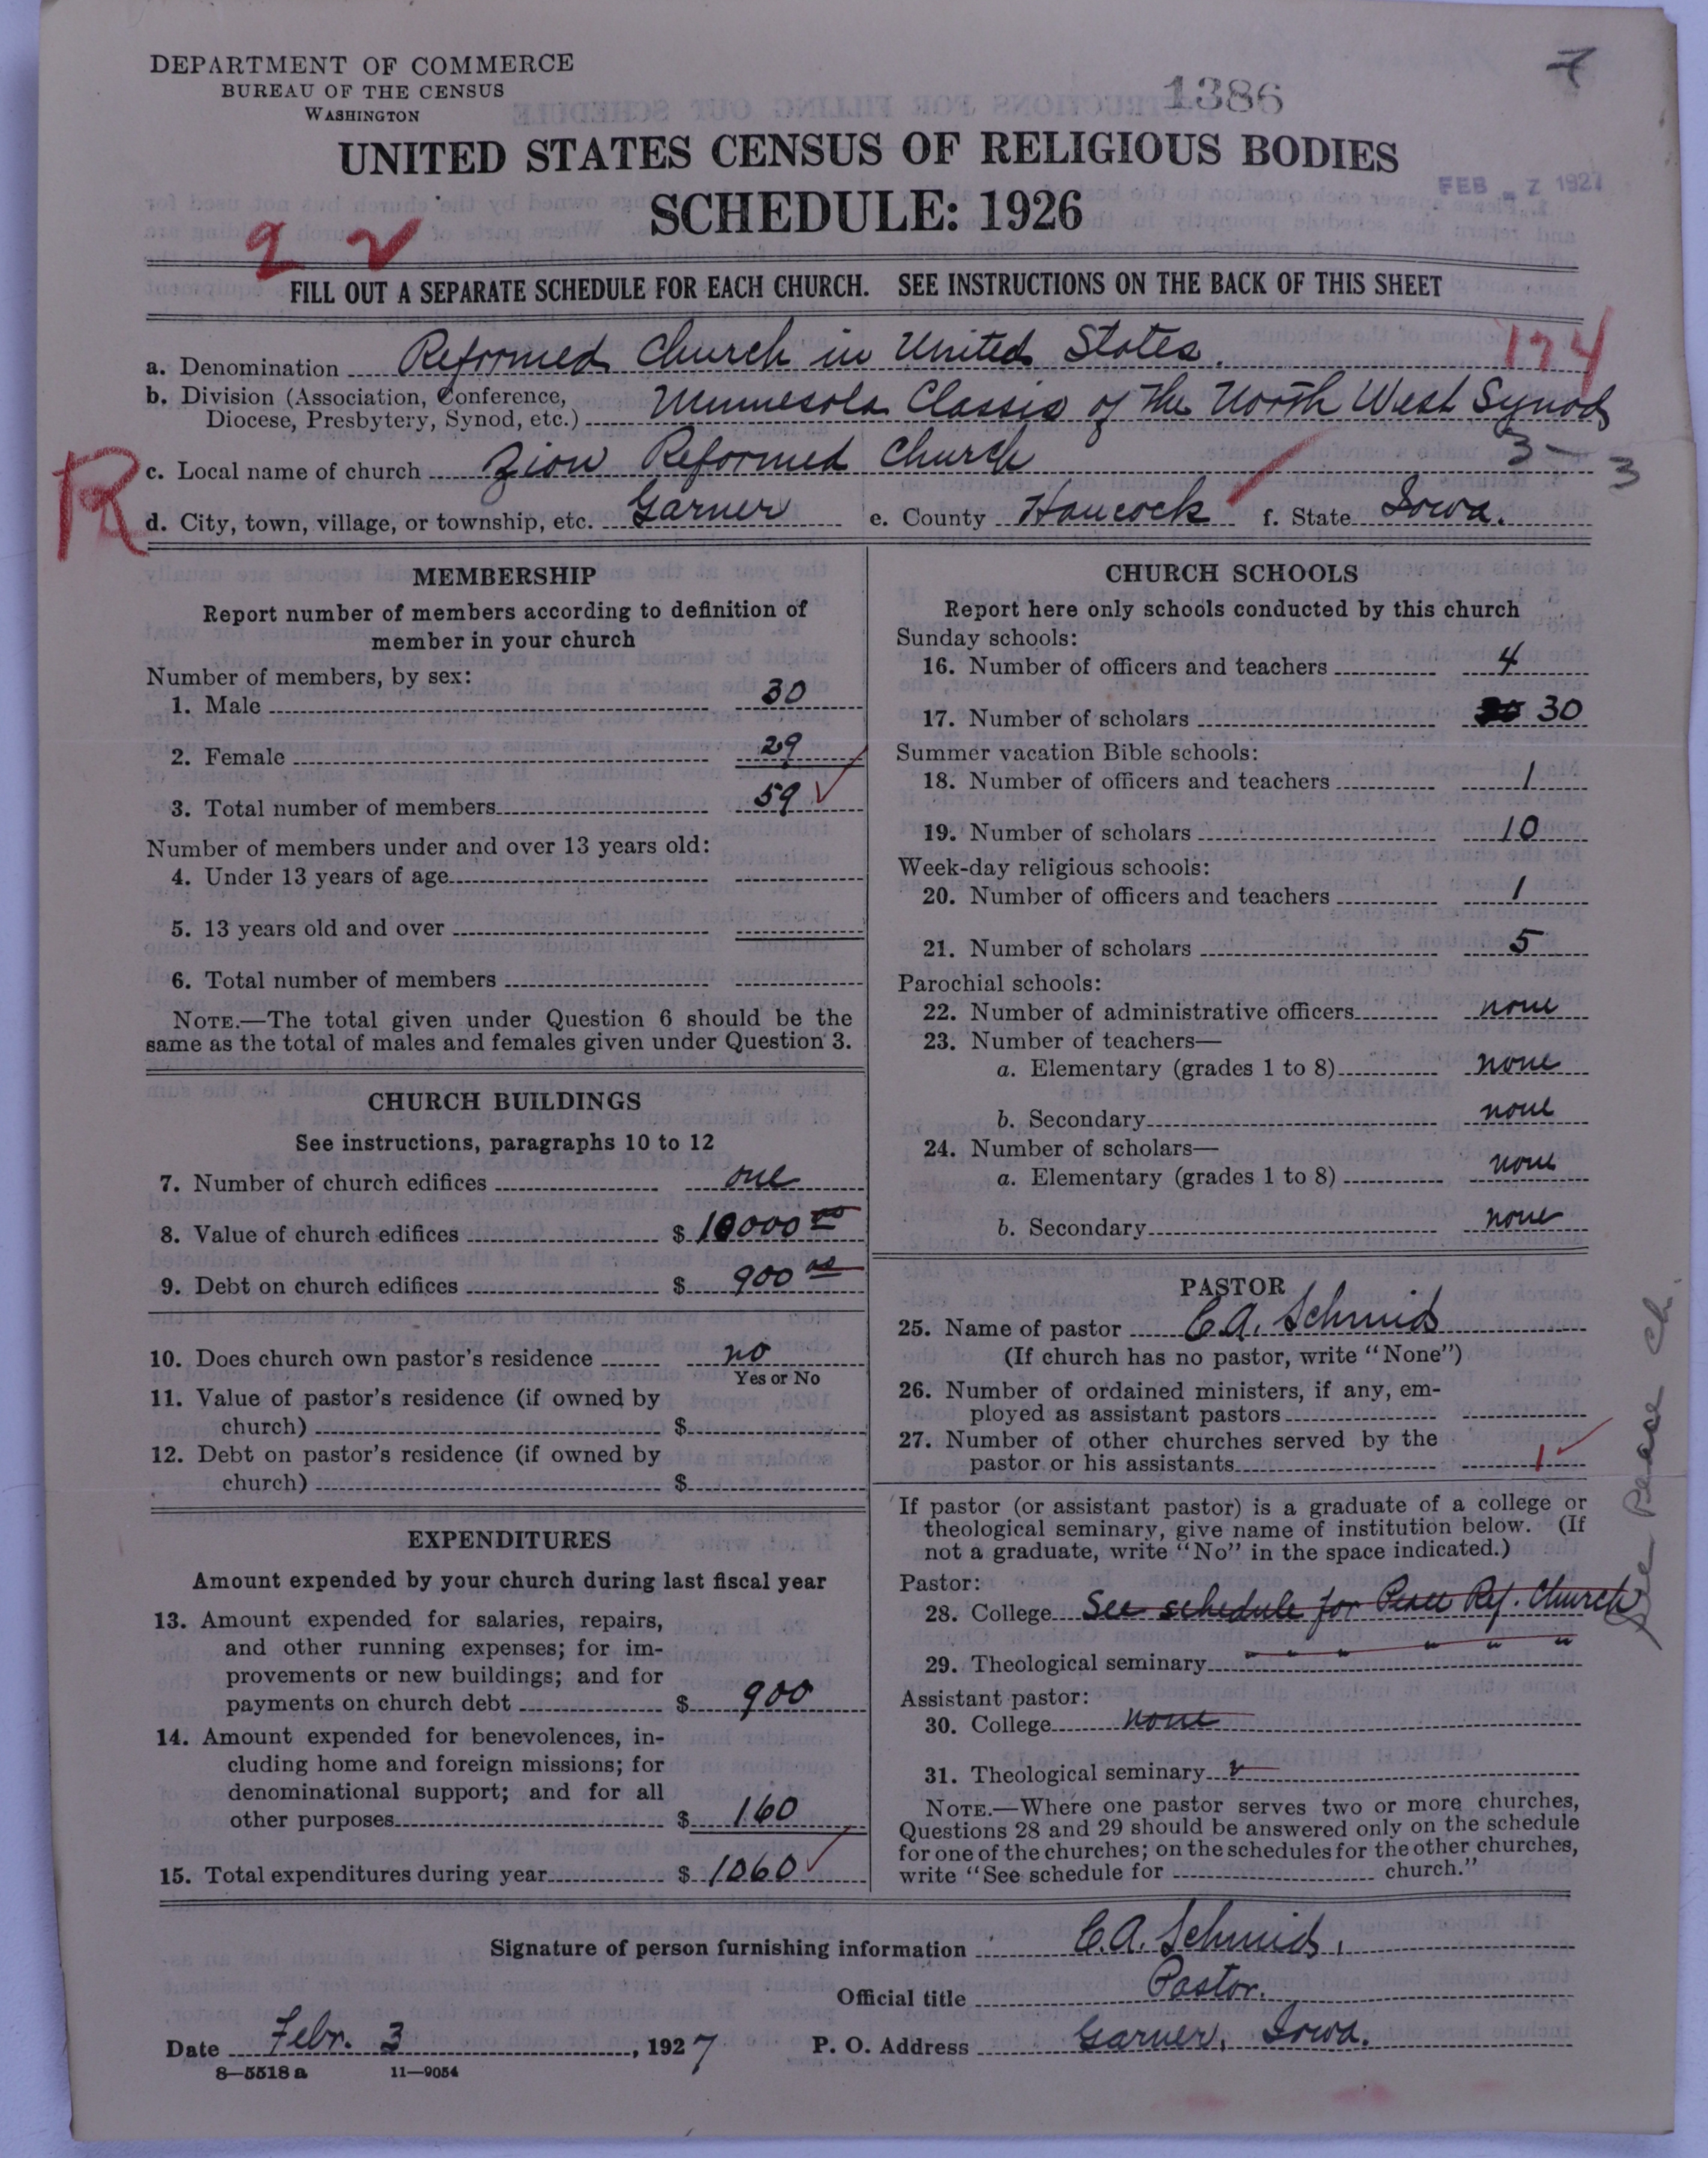 DEPARTMENT OF COMMERCE
BUREAU OF THE CENSUS
WASHINGTON
1386
UNITED STATES CENSUS OF RELIGIOUS BODIES
SCHEDULE: 1926
FEB - 7 1927
FILL OUT A SEPARATE SCHEDULE FOR EACH CHURCH. SEE INSTRUCTIONS ON THE BACK OF THIS SHEET
174
a. Denomination Reformed Church in United States.
b. Division (Association, Conference,
Diocese, Presbytery, Synod, etc.) Minnesota Classis of the North West Synod
c. Local name of church Zion Reformed Church 3- 3
R
d. City, town, village, or township, etc. Garner e. County Hancock f. State Iowa.
MEMBERSHIP
Report number of members according to definition of
member in your church
Number of members, by sex:
1. Male 30
2. Female 29
3. Total number of members 59
Number of members under and over 13 years old:
4. Under 13 years of age
5. 13 years old and over
6. Total number of members
NOTE.—The total given under Question 6 should be the
same as the total of males and females given under Question 3.
CHURCH BUILDINGS
See instructions, paragraphs 10 to 12
7. Number of church edifices one
8. Value of church edifices $ 10000 00
9. Debt on church edifices $ 900 00
10. Does church own pastor's residence no
Yes or No
11. Value of pastor's residence (if owned by
church) $
12. Debt on pastor's residence (if owned by
church) $
EXPENDITURES
Amount expended by your church during last fiscal year
13. Amount expended for salaries, repairs,
and other running expenses; for im-
provements or new buildings; and for
payments on church debt $ 900
14. Amount expended for benevolences, in-
cluding home and foreign missions; for
denominational support; and for all
other purposes $ 160
15. Total expenditures during year $ 1060
CHURCH SCHOOLS
Report here only schools conducted by this church
Sunday schools:
16. Number of officers and teachers 4
17. Number of scholars 30
Summer vacation Bible schools:
18. Number of officers and teachers 1
19. Number of scholars 10
Week-day religious schools:
20. Number of officers and teachers 1
21. Number of scholars 5
Parochial schools:
22. Number of administrative officers none
23. Number of teachers—
a. Elementary (grades 1 to 8) none
b. Secondary none
24. Number of scholars—
a. Elementary (grades 1 to 8) none
b. Secondary none
PASTOR
25. Name of pastor C.A. Schmid
(If church has no pastor, write "None")
26. Number of ordained ministers, if any, em-
ployed as assistant pastors
27. Number of other churches served by the
pastor or his assistants 1
If pastor (or assistant pastor) is a graduate of a college or
theological seminary, give name of institution below. (If
not a graduate, write "No" in the space indicated.)
Pastor:
28. College See schedule for Peace Ref. Church
29. Theological seminary " " " " " "
Assistant pastor:
30. College none
31. Theological seminary
NOTE.—Where one pastor serves two or more churches,
Questions 28 and 29 should be answered only on the schedule
for one of the churches; on the schedules for the other churches,
write "See schedule for church."
See Peace Ch.
Signature of person furnishing information C.A. Schmid,
Official title Pastor.
Date Febr. 3, 1927 P. O. Address Garner, Iowa.
8—5518 a 11—9054